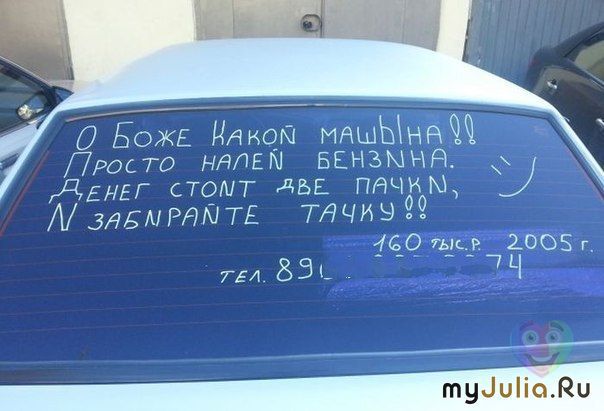 О Боже Какой машЫна!!
Просто налей бензина.
Денег стоит две пачки, :)
И забирайте тачку!!
160 тыс.р. 2005 г.
тел. 89 74
myJulia.Ru